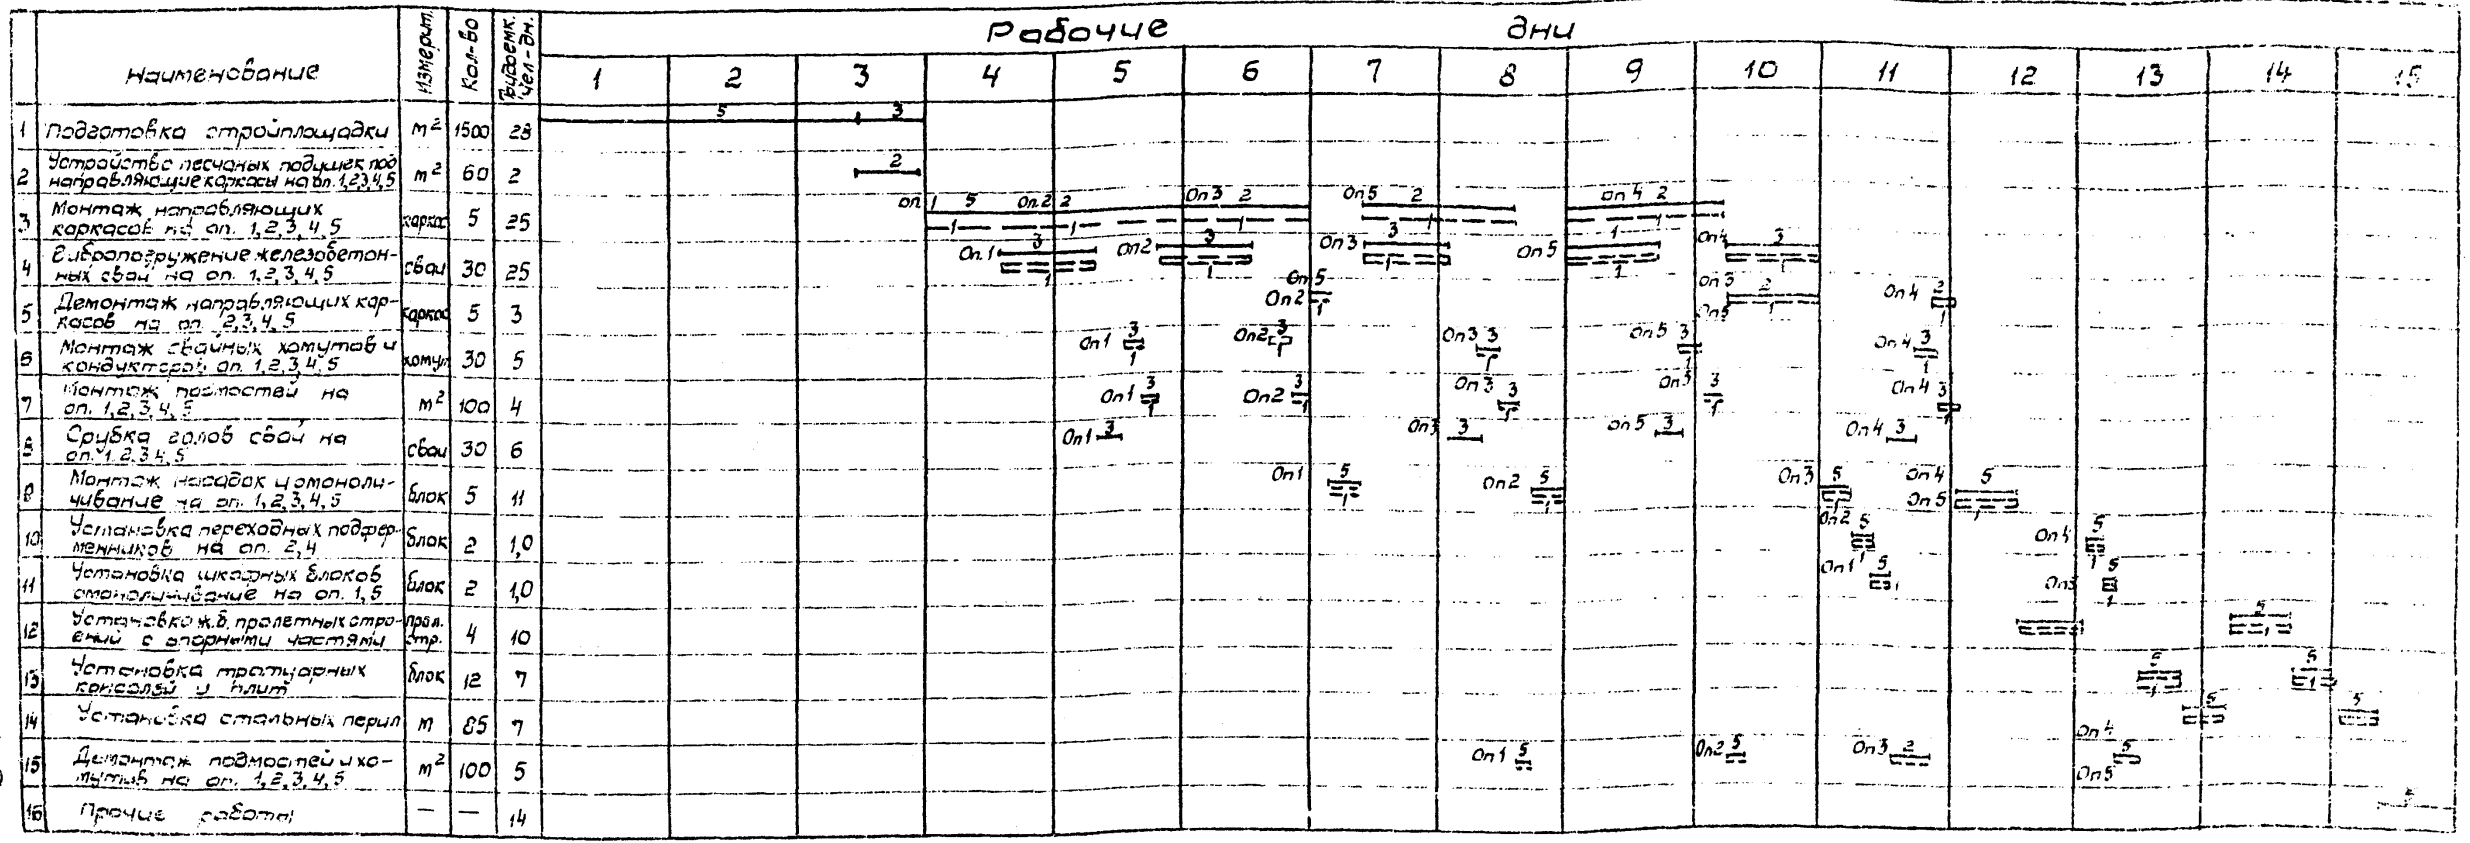 Рабочие дни
Наименование
Измерит.
Кол-во
Трудоемк. чел-дн.
1 2 3 4 5 6 7 8 9 10 11 12 13 14 15
1 Подготовка стройплощадки м² 1500 28
5 3
2 Устройство песчаных подушек под
направляющие каркасы на оп. 1,2,3,4,5 м² 60 2
2
3 Монтаж направляющих
каркасов на оп. 1,2,3,4,5 каркас 5 25
оп 1 5 Оп.2 2 Оп3 2 Оп5 2 Оп 4 2
1 1 1 1 1
4 Вибропогружение железобетон-
ных свай на оп. 1,2,3,4,5 сваи 30 25
Оп.1 3 Оп2 3 Оп3 3 Оп5 1 Оп4 3
1 1 1 1 1
5 Демонтаж направляющих кар-
касов на оп. 2,3,4,5 каркас 5 3
Оп5 Оп3 2 Оп4 2
Оп2 1 Оп5 1 1
6 Монтаж свайных хомутов и
кондукторов оп. 1,2,3,4,5 хомут 30 5
Оп1 3 Оп2 3 Оп3 3 Оп5 3 Оп4 3
1 1 1 1 1
7 Монтаж подмостей на
оп. 1,2,3,4,5 м² 100 4
Оп1 3 Оп2 3 Оп3 3 Оп5 3 Оп4 3
1 1 1 1 1
8 Срубка голов свай на
оп. 1,2,3,4,5 сваи 30 6
Оп1 3 Оп3 3 Оп5 3 Оп4 3
9 Монтаж насадок и омоноли-
чивание на оп. 1,2,3,4,5 блок 5 11
Оп1 5 Оп2 5 Оп3 5 Оп4 5
Оп5
1 1 1 1
10 Установка переходных подфер-
менников на оп. 2,4 блок 2 1,0
Оп2 5 Оп4 5
1 1
11 Установка шкафных блоков
омоноличивание на оп. 1,5 блок 2 1,0
Оп1 5 Оп5 5
1 1
12 Установка ж.б. пролетных стро-
ений с опорными частями прол. стр. 4 10
5
1
13 Установка тротуарных
консолей и плит блок 12 7
5 5
1 1
14 Установка стальных перил м 85 7
5 5
15 Демонтаж подмостей и хо-
мутов на оп. 1,2,3,4,5 м² 100 5
Оп1 5 Оп2 5 Оп3 2 Оп4 5
Оп5
16 Прочие работы — — 14